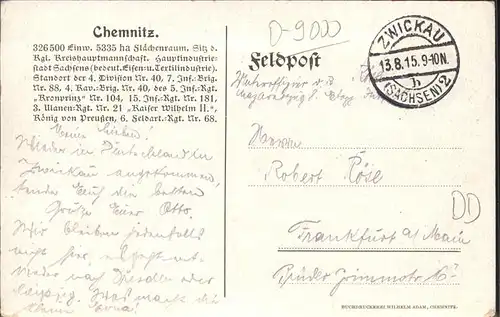 D-9000
Chemnitz.
326500 Einw. 5335 ha Flächenraum. Sitz d.
Kgl. Kreishauptmannschaft. Hauptindustrie-
stadt Sachsens (bedeut. Eisen- u. Textilindustrie).
Standort der 4. Division Nr. 40, 7. Inf.-Brig.
Nr. 88, 4. Kav.-Brg. Nr. 40, des 5. Inf.-Rgt.
„Kronprinz" Nr. 104, 15. Inf.-Rgt. Nr. 181,
3. Ulanen-Rgt. Nr. 21 „Kaiser Wilhelm II.",
König von Preußen, 6. Feldart.-Rgt. Nr. 68.
Feldpost
ZWICKAU
13.8.15. 9-10N.
b
(SACHSEN) 2
Unteroffizier
Meine Lieben!
Wieder in Deutschland in
Zwickau angekommen,
sende Euch die besten
Grüße Euer Otto.
Wir bleiben jedenfalls
nicht hier,
wieder nach Dresden oder
Leipzig. Was macht die
kleine
Herrn
Robert Röse
Frankfurt a/Main
Brüder Grimmstr.
DD
BUCHDRUCKEREI WILHELM ADAM, CHEMNITZ.